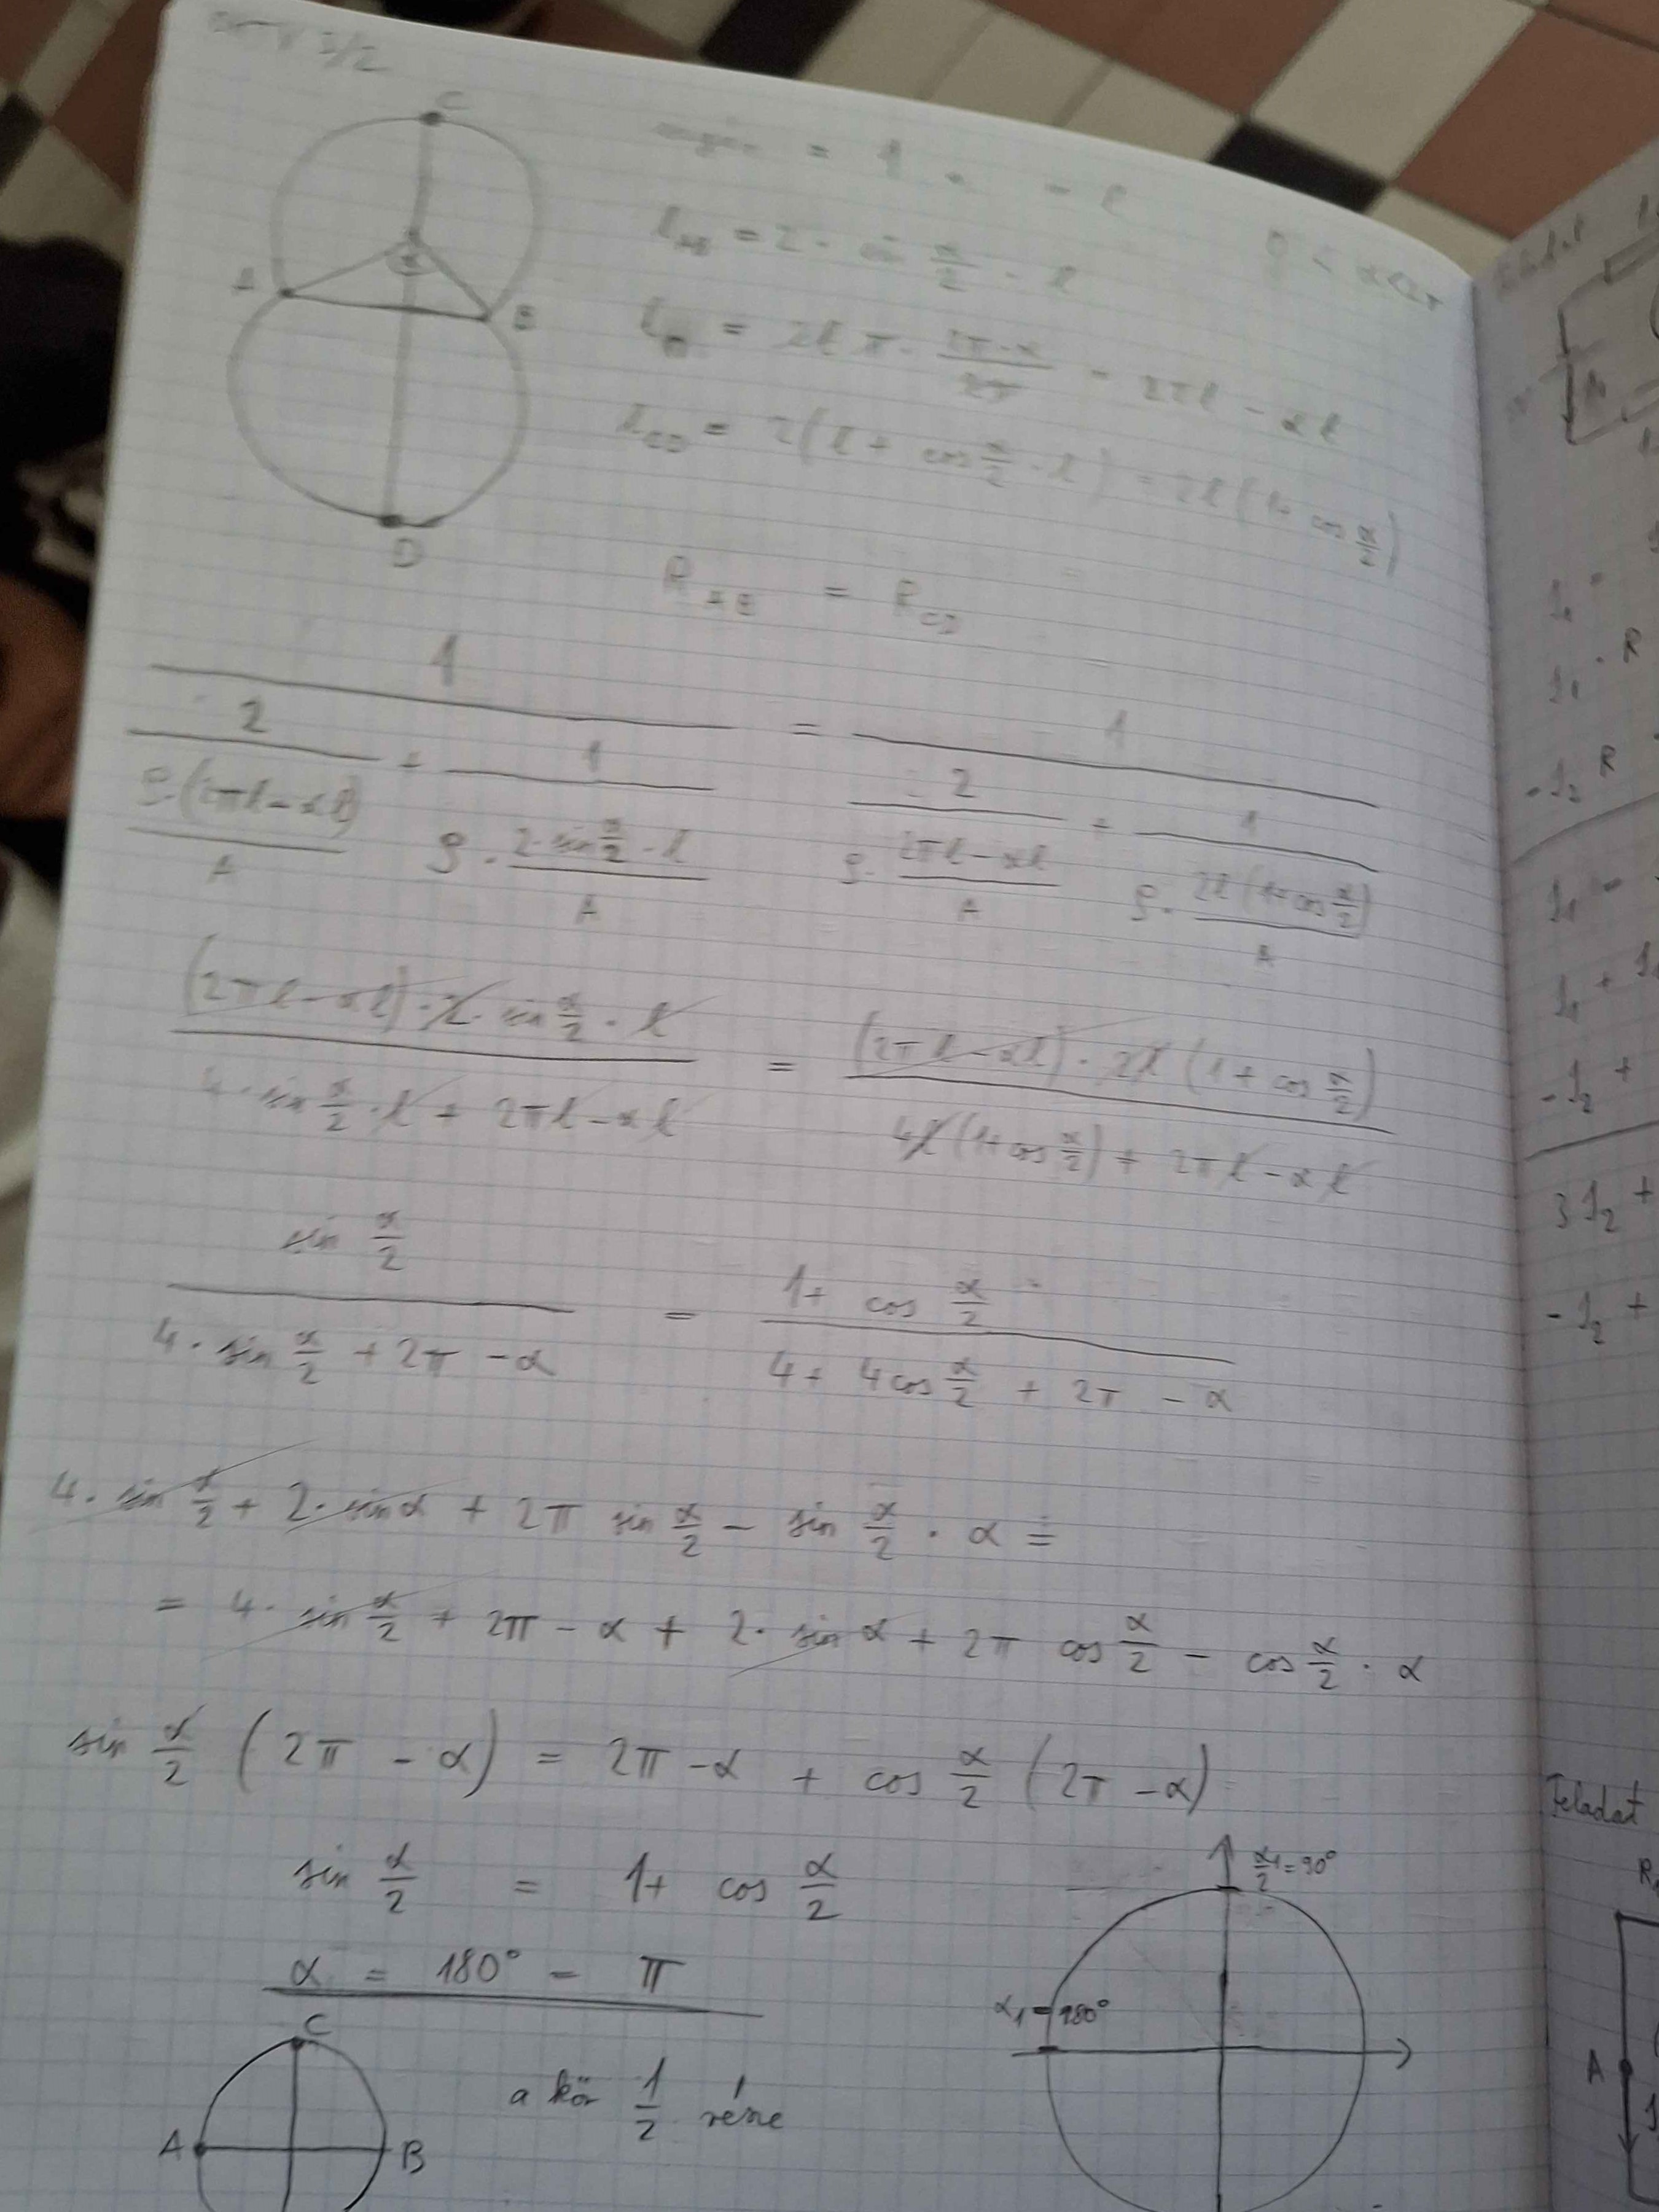 3/2
C
= 1
0 < α < 2π
l_AB = 2 · sin α/2 · l
A
B
l = 2lπ · (2π-α)/2π = 2πl - αl
l_CD = 2(l + cos α/2 · l) = 2l(1+ cos α/2)
D
R_AB = R_CD
1 / (2 / (ρ·(2πl-αl)/A) + 1 / (ρ · (2·sin α/2 · l)/A)) = 1 / (2 / (ρ · (2πl-αl)/A) + 1 / (ρ · (2l(1+cos α/2))/A))
(2πl-αl)·2· sin α/2 · l / (4·sin α/2 · l + 2πl-αl) = (2πl-αl) · 2l (1+ cos α/2) / (4l(1+cos α/2) + 2πl-αl)
sin α/2 / (4· sin α/2 + 2π - α) = (1+ cos α/2) / (4+ 4cos α/2 + 2π - α)
4· sin α/2 + 2· sin α + 2π sin α/2 - sin α/2 · α =
= 4· sin α/2 + 2π - α + 2· sin α + 2π cos α/2 - cos α/2 · α
sin α/2 (2π - α) = 2π - α + cos α/2 (2π - α)
sin α/2 = 1+ cos α/2
α₁/2 = 90°
α = 180° = π
α₁ = 180°
C
a kör 1/2 része
A
B
R
I₁ · R
-I₂ R
I₁ =
I₁ +
-I₂ +
3I₂ +
-I₂ +
Feladat
A